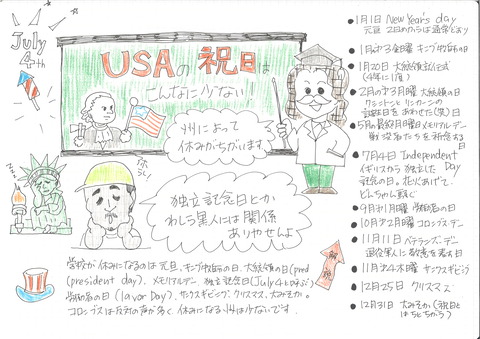 July
4th
USAの祝日は
こんなに少ない!
州によって
休みがちがいます
zzz
独立記念日とか
わしら黒人には関係
ありやせんよ
解説
学校が休みになるのは元旦、キング牧師の日、大統領の日(pred
(president day)、メモリアルデー、独立記念日(July4とよぶ)
労働者の日(lavor Day)、サンクスギビング、クリスマス、大みそか。
コロンブスは反対の声が多く、休みになる州は少ないです。
●1月1日 New Year's day
元旦 2日めからは通常どおり
●1月第3月曜 キング牧師の日
●1月20日 大統領就任式
(4年に1度)
●2月の第3月曜 大統領の日
ワシントンとリンカーンの
誕生日をあわせた(祝)日
●5月の最終月曜日メモリアルデー
戦没者たちを祈念する
日
●7月4日 Independent
イギリスから独立した Day
記念の日。花火あげて、
どんちゃん騒ぐ
●9月第1月曜 労働者の日
●10月第2月曜 コロンブスデー
●11月11日 ベテランズ・デー
退役軍人に敬意を表す日
●11月第4木曜 サンクスギビング
●12月25日 クリスマス
●12月31日 大みそか(祝日と
はちとちがう)